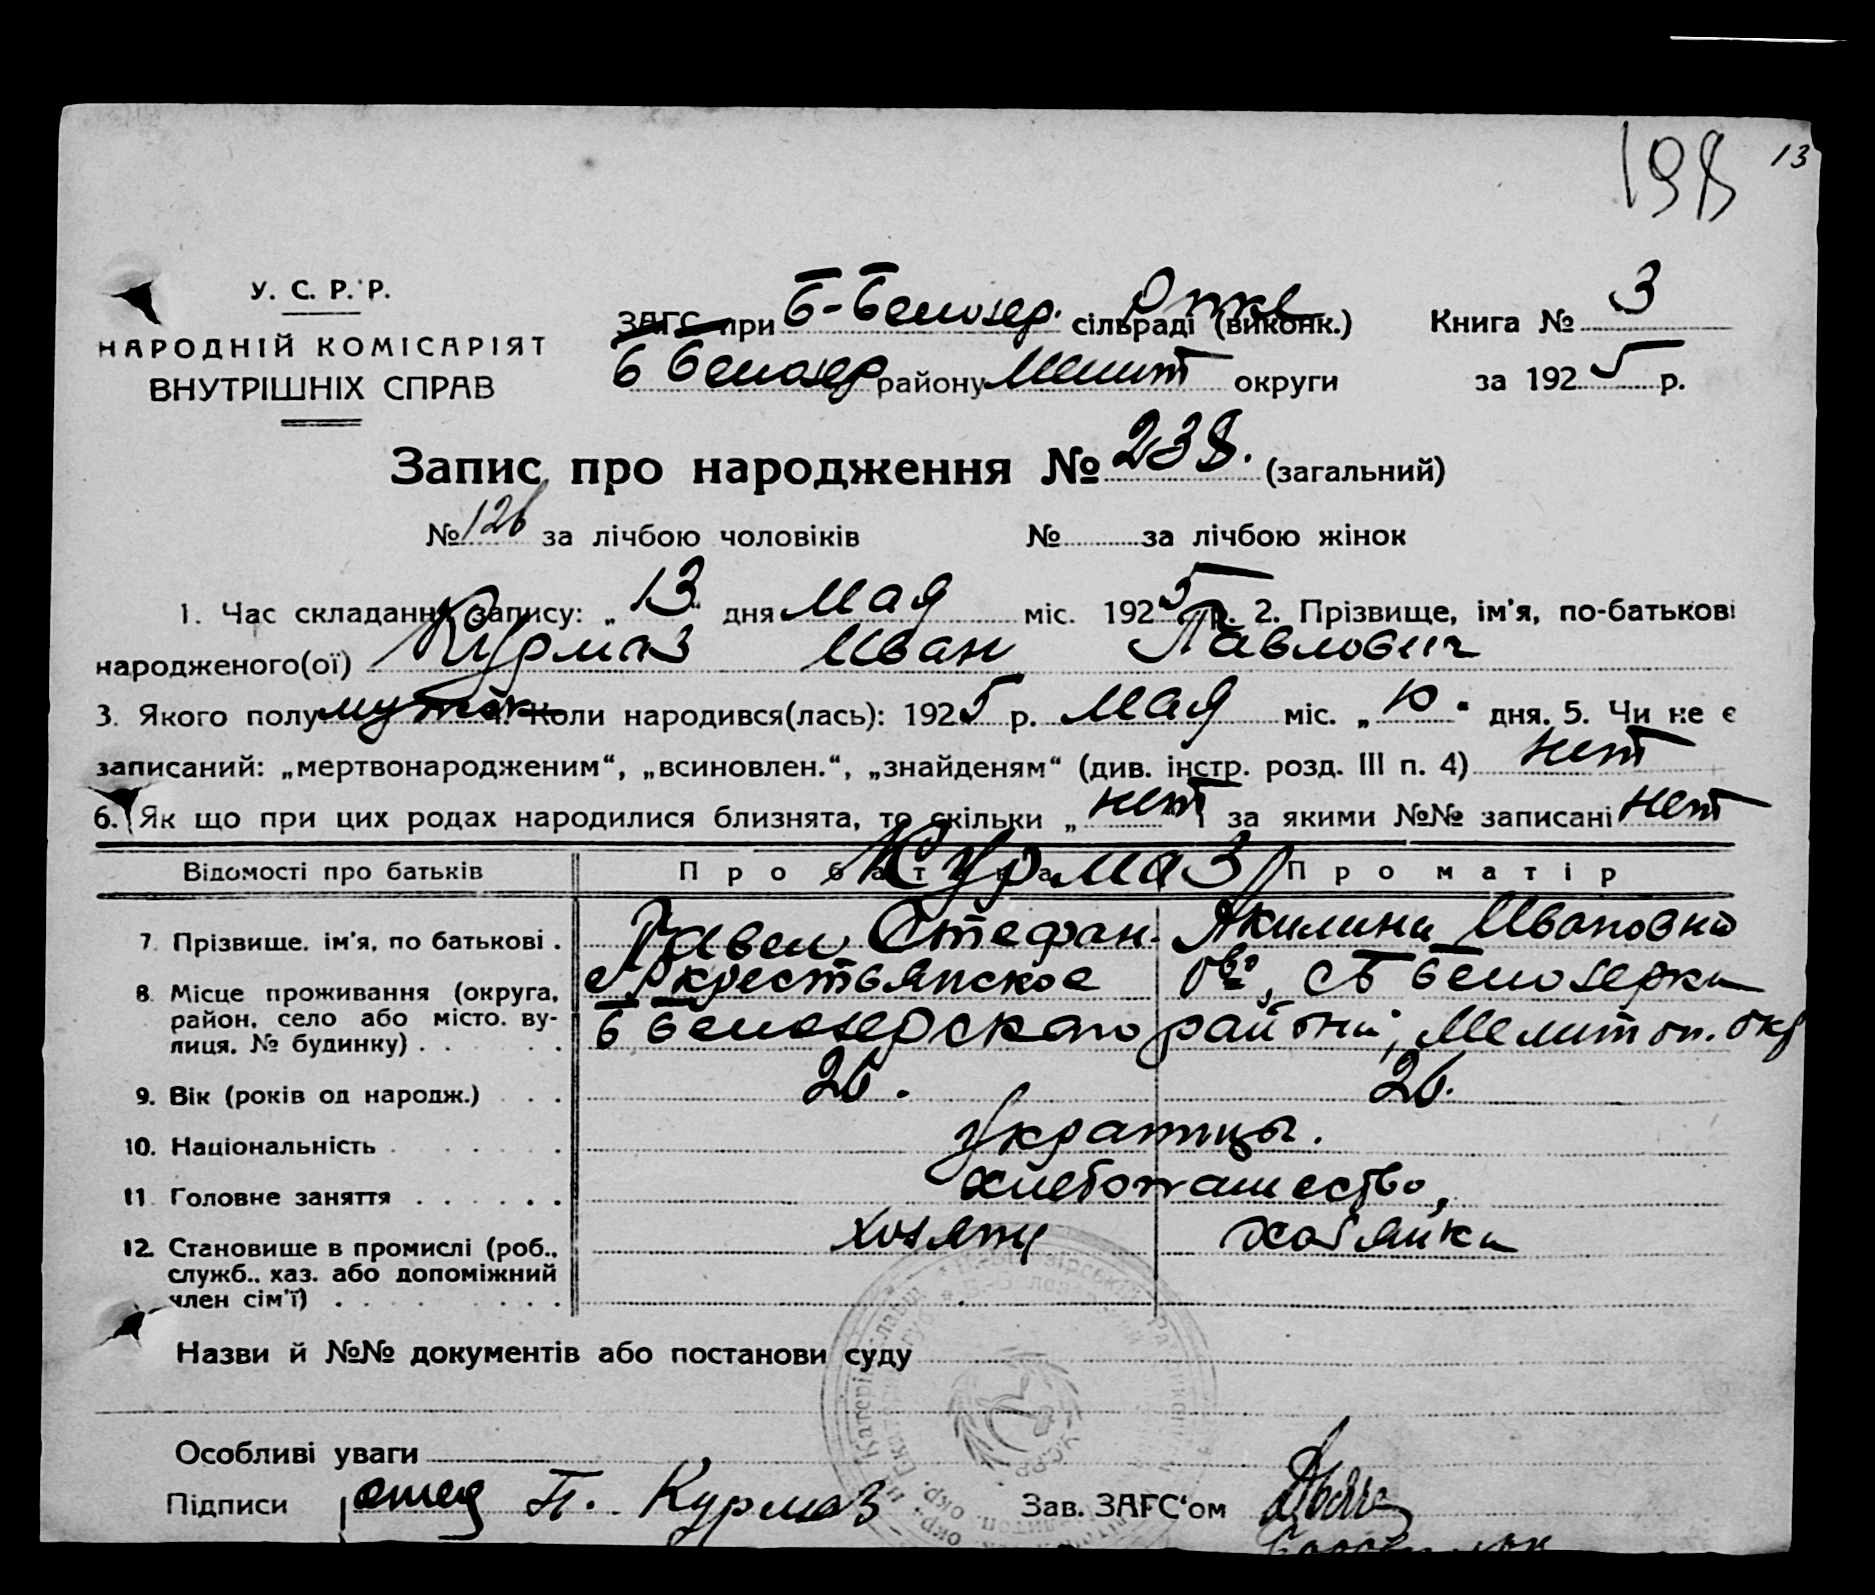 198 13
У. С. Р. Р.
НАРОДНІЙ КОМІСАРІЯТ
ВНУТРІШНІХ СПРАВ
ЗАГС при Б-Белозер. сільраді (виконк.) Книга № 3
Б Белозер району Мелит округи за 1925 р.
Запис про народження № 238. (загальний)
№ 126 за лічбою чоловіків № за лічбою жінок
1. Час складання запису: „ 13 “ дня мая міс. 1925 р. 2. Прізвище, ім'я, по-батькові
народженого(ої) Курмаз Иван Павлович
3. Якого полу мужск 4. Коли народився(лась): 1925 р. мая міс. „ 10 “ дня. 5. Чи не є
записаний: „мертвонародженим“, „всиновлен.“, „знайденям“ (див. інстр. розд. III п. 4) нет
6. Як що при цих родах народилися близнята, то скільки „ нет “ і за якими №№ записані нет
Відомості про батьків Про батька Про матір
Курмаз
7. Прізвище, ім'я, по батькові . Павел Стефан. Акилина Ивановна
8. Місце проживання (округа, район, село або місто, вулиця, № будинку) . . . . крестьянское об-во, с Б Белозерка
Б Белозерского района, Мелитоп. окр
9. Вік (років од народж.) . . 26. 26.
10. Національність . . . . . . украинцы.
11. Головне заняття . . . . . . хлебопашество,
12. Становище в промислі (роб., служб., хаз. або допоміжний член сім'ї) . . . . . . . хозяин хозяйка
Назви й №№ документів або постанови суду
Особливі уваги
Підписи отец П. Курмаз Зав. ЗАГС'ом